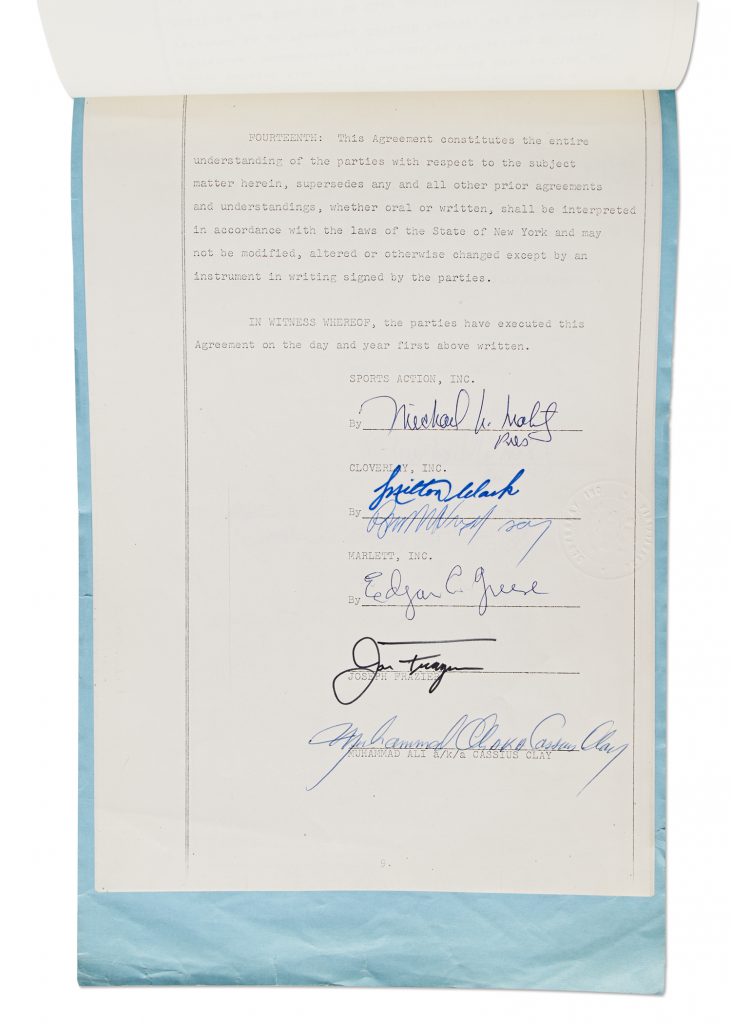 FOURTEENTH: This Agreement constitutes the entire
understanding of the parties with respect to the subject
matter herein, supersedes any and all other prior agreements
and understandings, whether oral or written, shall be interpreted
in accordance with the laws of the State of New York and may
not be modified, altered or otherwise changed except by an
instrument in writing signed by the parties.
IN WITNESS WHEREOF, the parties have executed this
Agreement on the day and year first above written.
SPORTS ACTION, INC.
By Michael
Pres
CLOVERLAY, INC.
By
MARLETT, INC.
By Edgar C.
Joe Frazier
JOSEPH FRAZIER
Muhammad Ali AKA Cassius Clay
MUHAMMAD ALI a/k/a CASSIUS CLAY
9.